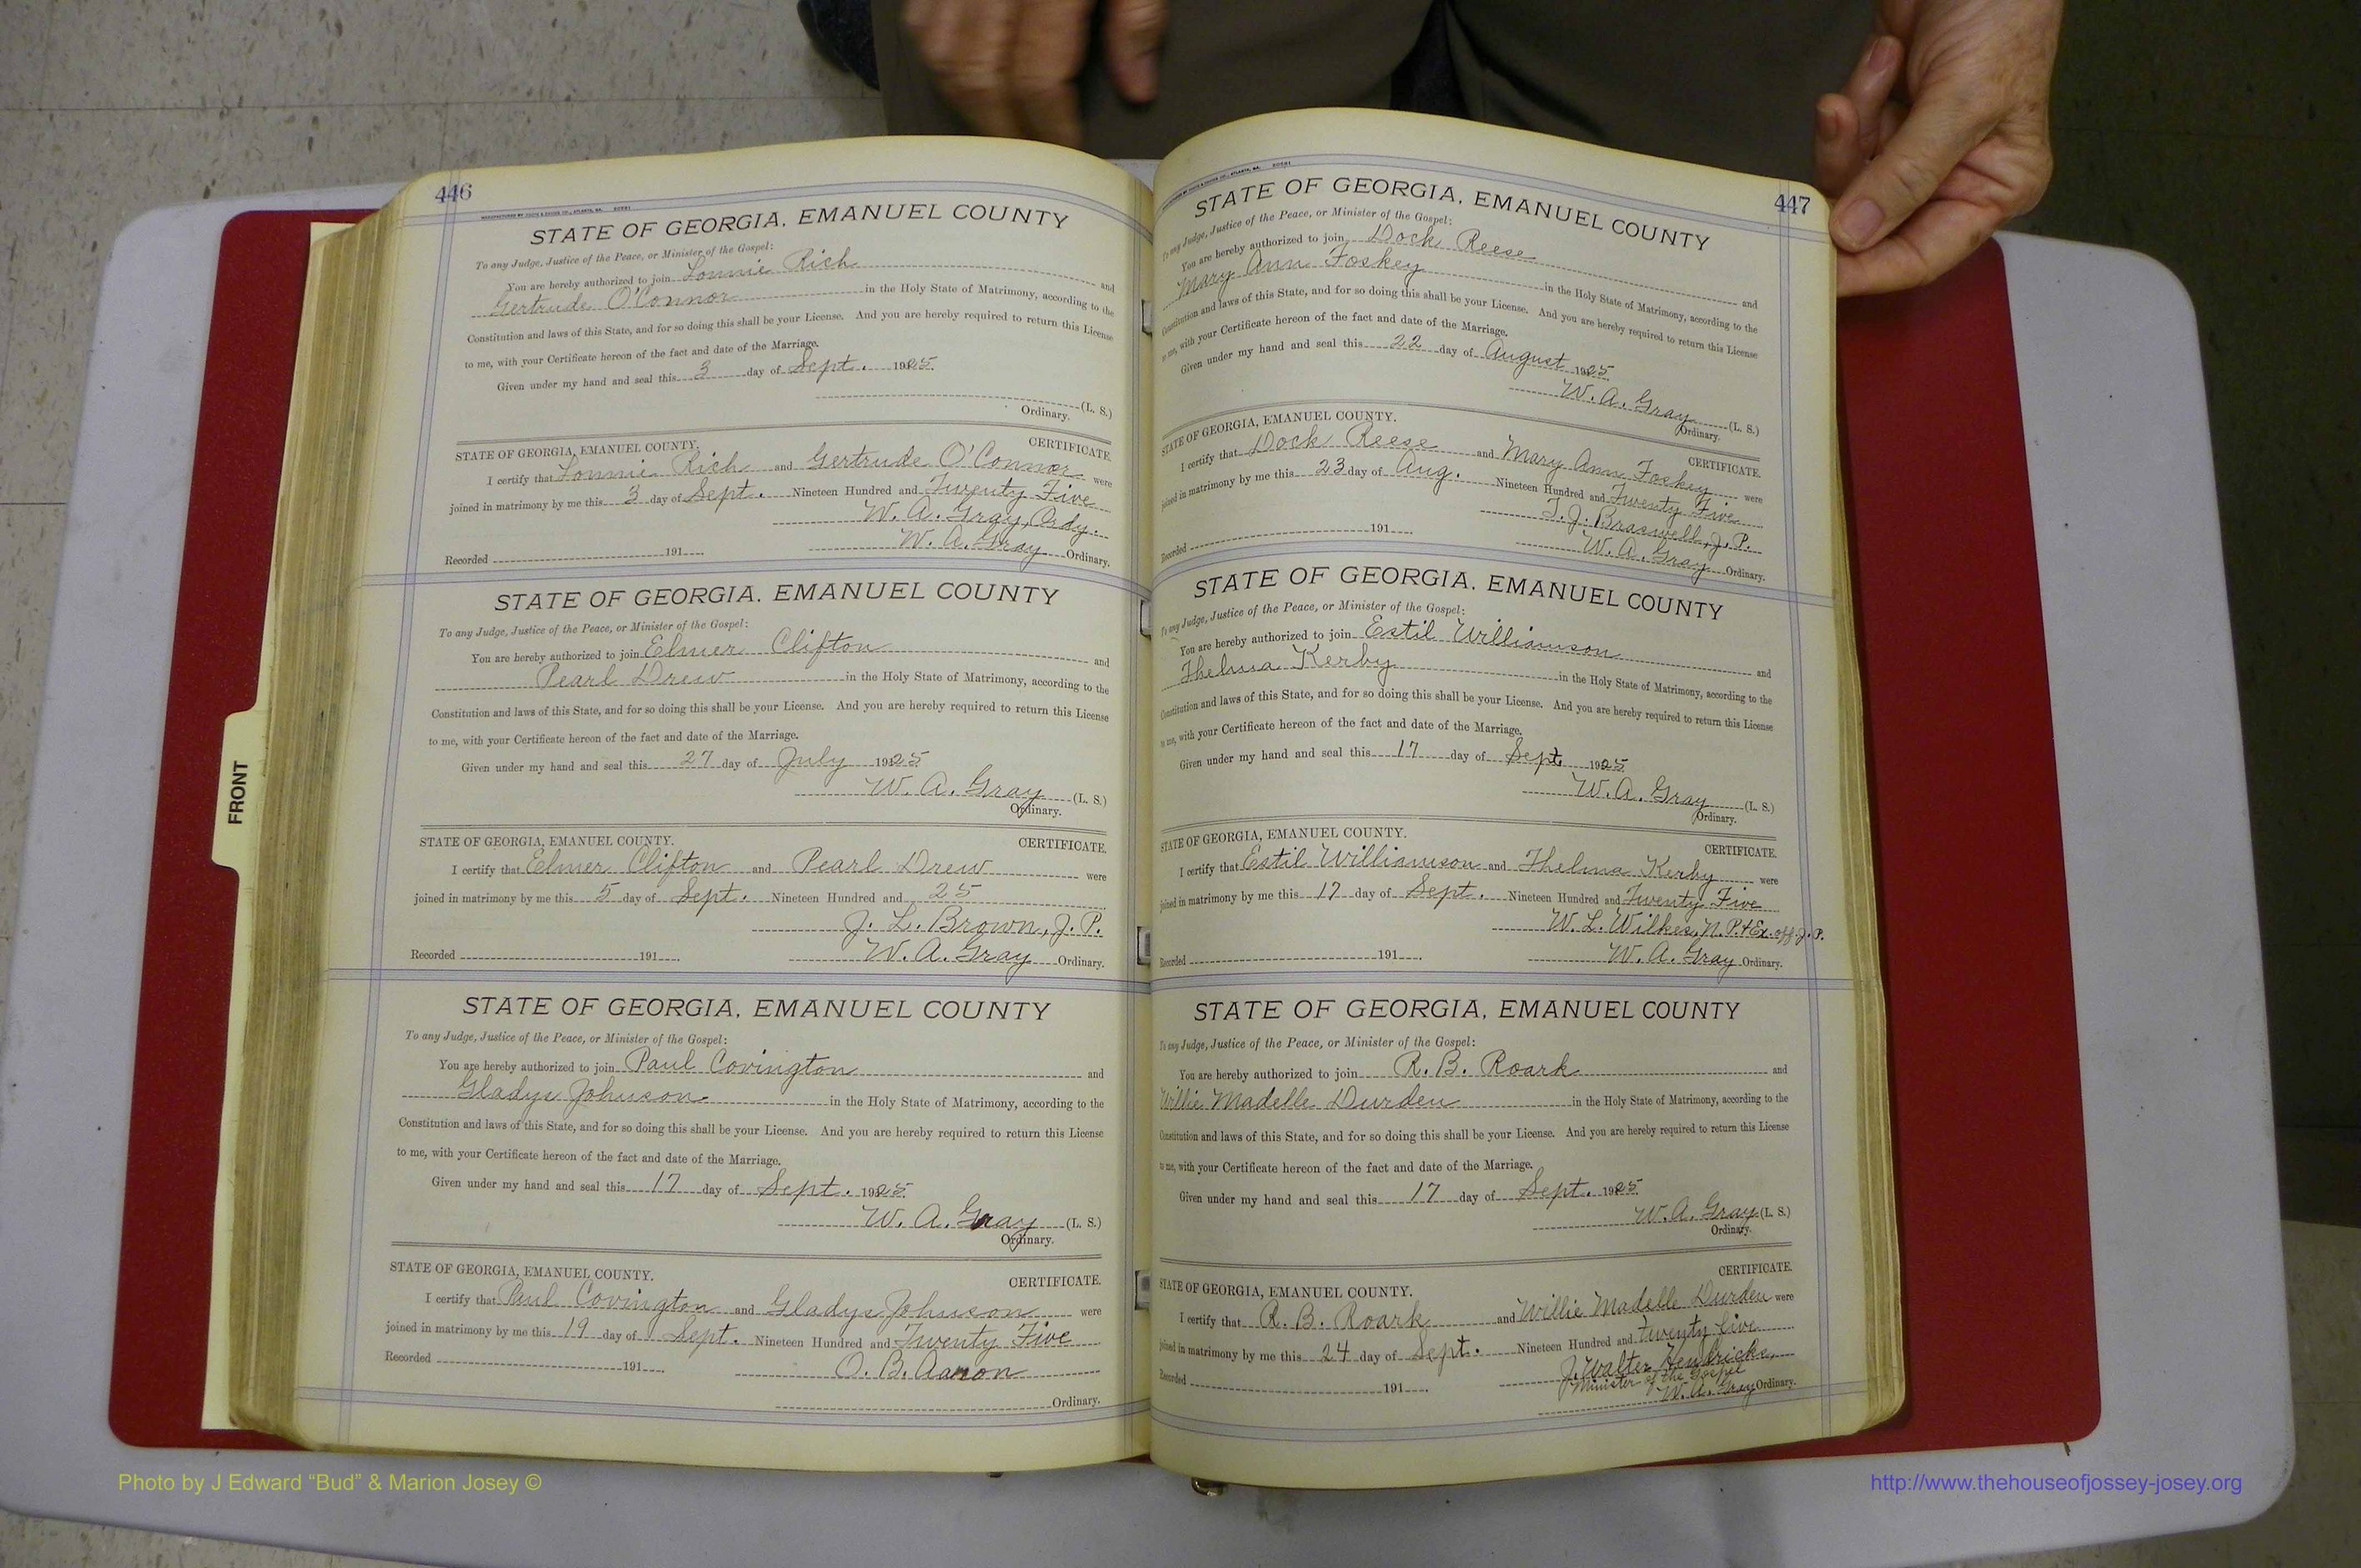 446
STATE OF GEORGIA, EMANUEL COUNTY
To any Judge, Justice of the Peace, or Minister of the Gospel:
You are hereby authorized to join Lonnie Rich and
Gertrude O'Connor in the Holy State of Matrimony, according to the
Constitution and laws of this State, and for so doing this shall be your License. And you are hereby required to return this License
to me, with your Certificate hereon of the fact and date of the Marriage.
Given under my hand and seal this 3 day of Sept. 1925
(L. S.)
Ordinary.
STATE OF GEORGIA, EMANUEL COUNTY. CERTIFICATE.
I certify that Lonnie Rich and Gertrude O'Connor were
joined in matrimony by me this 3 day of Sept. Nineteen Hundred and Twenty Five
W. A. Gray, Ordy.
Recorded 191 W. A. Gray Ordinary.
STATE OF GEORGIA, EMANUEL COUNTY
To any Judge, Justice of the Peace, or Minister of the Gospel:
You are hereby authorized to join Elmer Clifton and
Pearl Drew in the Holy State of Matrimony, according to the
Constitution and laws of this State, and for so doing this shall be your License. And you are hereby required to return this License
to me, with your Certificate hereon of the fact and date of the Marriage.
Given under my hand and seal this 27 day of July 1925
W. A. Gray (L. S.)
Ordinary.
STATE OF GEORGIA, EMANUEL COUNTY. CERTIFICATE.
I certify that Elmer Clifton and Pearl Drew were
joined in matrimony by me this 5 day of Sept. Nineteen Hundred and 25
J. L. Brown, J. P.
Recorded 191 W. A. Gray Ordinary.
STATE OF GEORGIA, EMANUEL COUNTY
To any Judge, Justice of the Peace, or Minister of the Gospel:
You are hereby authorized to join Paul Covington and
Gladys Johnson in the Holy State of Matrimony, according to the
Constitution and laws of this State, and for so doing this shall be your License. And you are hereby required to return this License
to me, with your Certificate hereon of the fact and date of the Marriage.
Given under my hand and seal this 17 day of Sept. 1925
W. A. Gray (L. S.)
Ordinary.
STATE OF GEORGIA, EMANUEL COUNTY. CERTIFICATE.
I certify that Paul Covington and Gladys Johnson were
joined in matrimony by me this 19 day of Sept. Nineteen Hundred and Twenty Five
Recorded 191 O. B. Aaron
Ordinary.
447
STATE OF GEORGIA, EMANUEL COUNTY
To any Judge, Justice of the Peace, or Minister of the Gospel:
You are hereby authorized to join Dock Reese and
Mary Ann Foskey in the Holy State of Matrimony, according to the
Constitution and laws of this State, and for so doing this shall be your License. And you are hereby required to return this License
to me, with your Certificate hereon of the fact and date of the Marriage.
Given under my hand and seal this 22 day of August 1925
W. A. Gray (L. S.)
Ordinary.
STATE OF GEORGIA, EMANUEL COUNTY. CERTIFICATE.
I certify that Dock Reese and Mary Ann Foskey were
joined in matrimony by me this 23 day of Aug. Nineteen Hundred and Twenty Five
T. J. Braswell, J. P.
Recorded 191 W. A. Gray Ordinary.
STATE OF GEORGIA, EMANUEL COUNTY
To any Judge, Justice of the Peace, or Minister of the Gospel:
You are hereby authorized to join Estil Williamson and
Thelma Kerby in the Holy State of Matrimony, according to the
Constitution and laws of this State, and for so doing this shall be your License. And you are hereby required to return this License
to me, with your Certificate hereon of the fact and date of the Marriage.
Given under my hand and seal this 17 day of Sept. 1925
W. A. Gray (L. S.)
Ordinary.
STATE OF GEORGIA, EMANUEL COUNTY. CERTIFICATE.
I certify that Estil Williamson and Thelma Kerby were
joined in matrimony by me this 17 day of Sept. Nineteen Hundred and Twenty Five
W. L. Wilkes, N. P. & Ex. off. J. P.
Recorded 191 W. A. Gray Ordinary.
STATE OF GEORGIA, EMANUEL COUNTY
To any Judge, Justice of the Peace, or Minister of the Gospel:
You are hereby authorized to join R. B. Roark and
Willie Madelle Durden in the Holy State of Matrimony, according to the
Constitution and laws of this State, and for so doing this shall be your License. And you are hereby required to return this License
to me, with your Certificate hereon of the fact and date of the Marriage.
Given under my hand and seal this 17 day of Sept. 1925
W. A. Gray (L. S.)
Ordinary.
STATE OF GEORGIA, EMANUEL COUNTY. CERTIFICATE.
I certify that R. B. Roark and Willie Madelle Durden were
joined in matrimony by me this 24 day of Sept. Nineteen Hundred and twenty five
J. Walter Hendricks,
Minister of the Gospel
Recorded 191 W. A. Gray Ordinary.
FRONT
Photo by J Edward “Bud” & Marion Josey ©
http://www.thehouseofjossey-josey.org